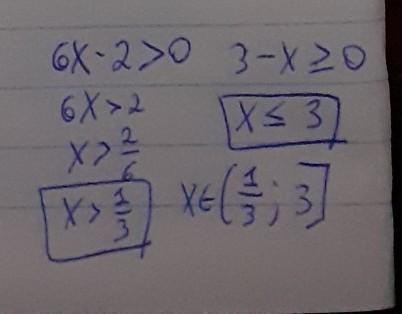 6x-2>0   3-x≥0
6x>2   x≤ 3
x>2/6
x>1/3   x∈(1/3; 3]